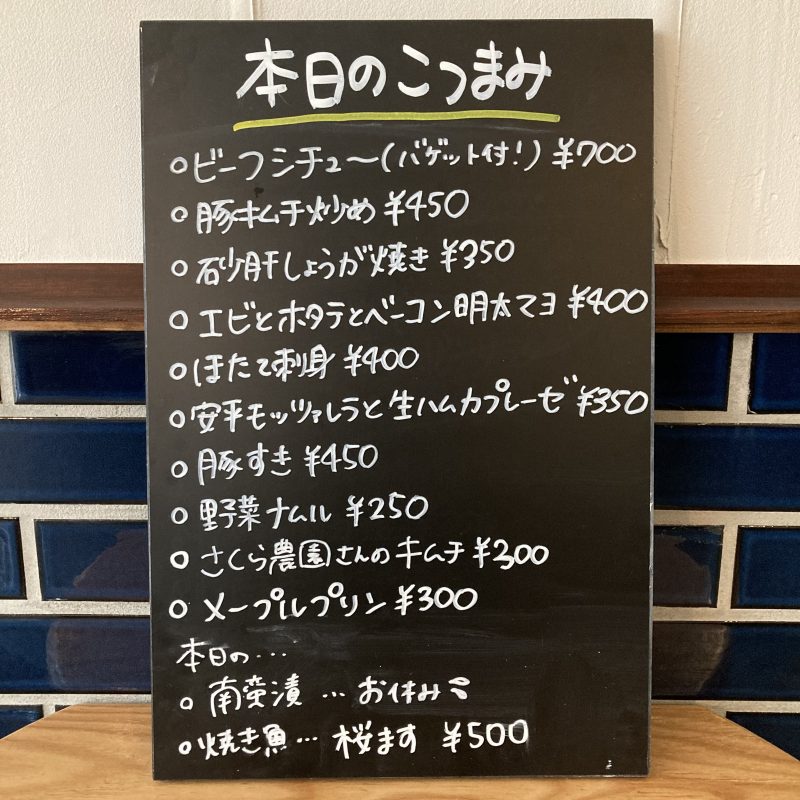 本日のこつまみ
○ビーフシチュ〜(バゲット付!) ¥700
○豚キムチ炒め ¥450
○砂肝しょうが焼き ¥350
○エビとホタテとベーコン明太マヨ ¥400
○ほたて刺身 ¥400
○安平モッツァレラと生ハムカプレーゼ ¥350
○豚すき ¥450
○野菜ナムル ¥250
○さくら農園さんのキムチ ¥300
○メープルプリン ¥300
本日の…
○南蛮漬 … お休み
○焼き魚… 桜ます ¥500